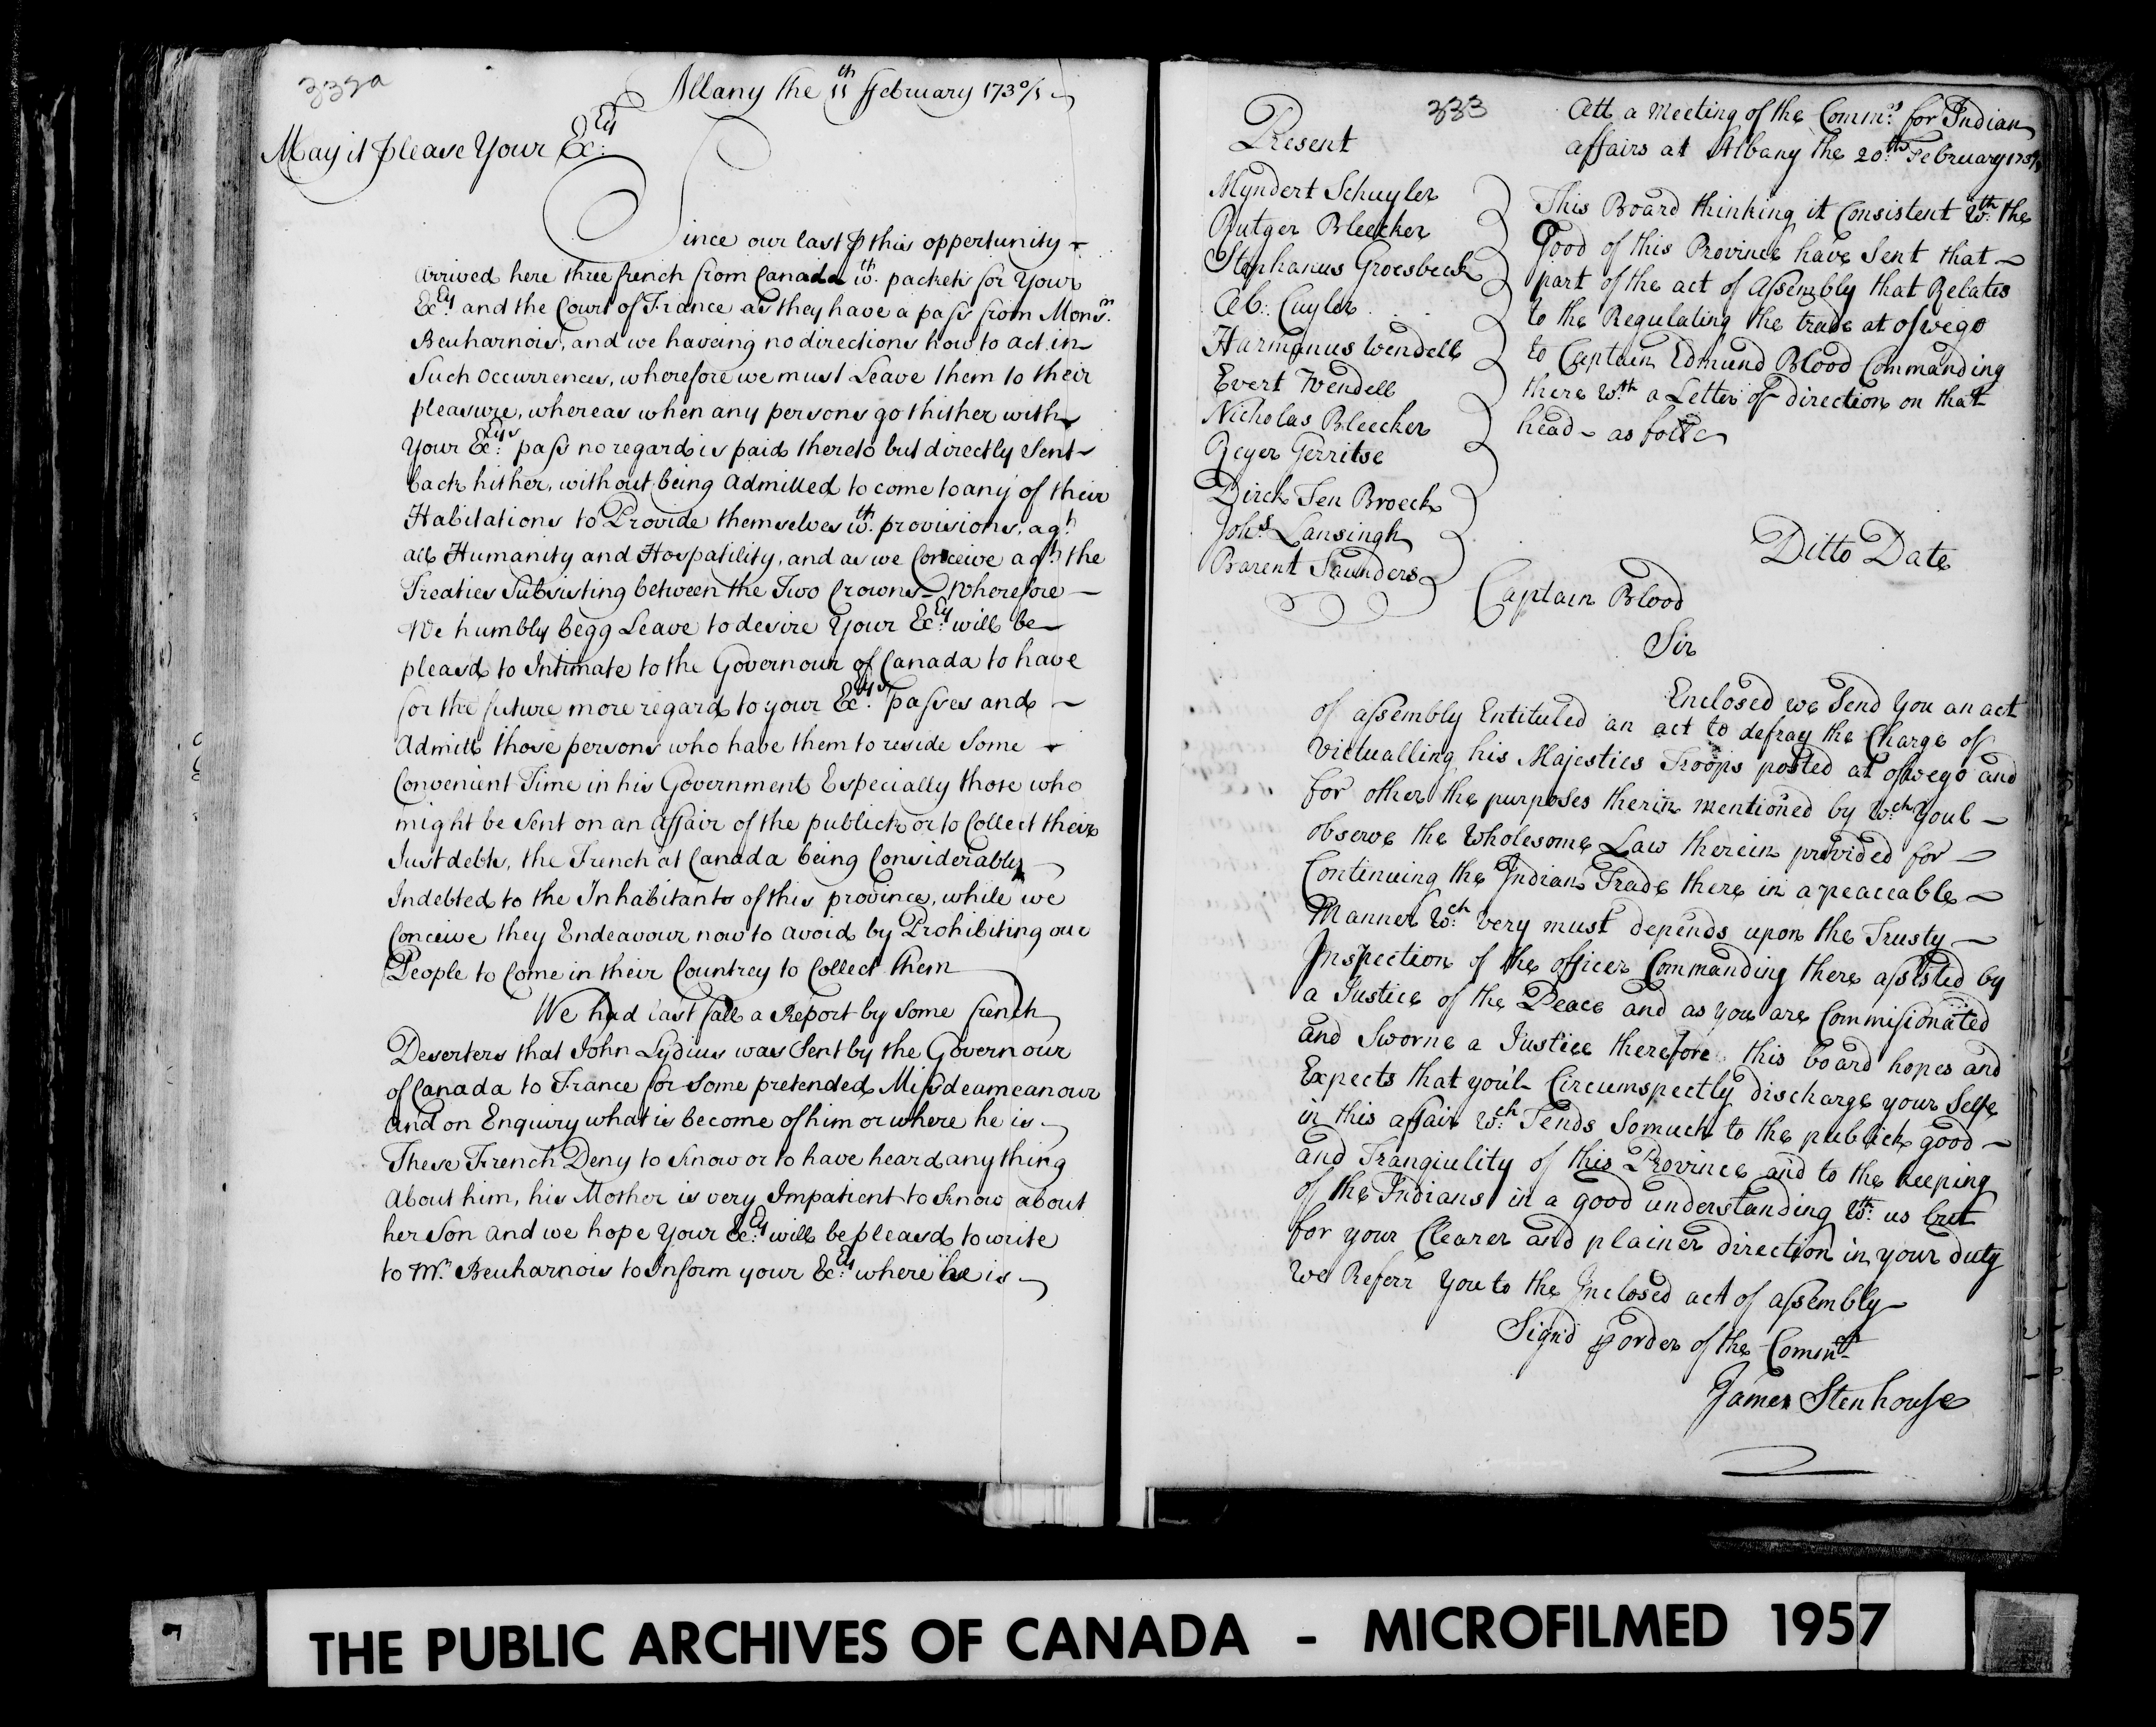 332a
Albany the 11th February 1730/1
May it please Your Excy
Since our last p this oppertunity
arrived here three french from Canada wth packets for Your
Excy and the Court of France as they have a pass from Monsr
Beuharnois, and we haveing no directions how to act in
Such occurrences, wherefore we must Leave them to their
pleasure, whereas when any persons go thither with
Your Excys pass no regard is paid thereto but directly Sent
back hither, without being admitted to come to any of their
Habitations to Provide themselves wth provisions, agt
all Humanity and Hospatility, and as we Conceive agt the
Treaties Subsisting between the Two Crowns Wherefore
We humbly begg Leave to desire Your Excy will be
pleasd to Intimate to the Governour of Canada to have
for the future more regard to your Excys passes and
Admitt those persons who have them to reside Some
Convenient Time in his Government Especially those who
might be Sent on an affair of the publick or to Collect their
Just debts, the French at Canada being Considerably
Indebted to the Inhabitants of this province, while we
Conceive they Endeavour now to avoid by Prohibiting our
People to Come in their Countrey to Collect them
We had last fall a Report by Some french
Deserters that John Lydius was Sent by the Governour
of Canada to France for Some pretended Missdeameanour
and on Enquiry what is become of him or where he is
These French Deny to know or to have heard any thing
About him, his Mother is very Impatient to know about
her Son and we hope Your Excy will be pleasd to write
to Mr Beuharnois to Inform your Excy where he is
333
Att a Meeting of the Commrs for Indian
affairs at Albany the 20th February 1730/1
Present
Myndert Schuyler
Rutger Bleecker
Stephanus Groesbeck
Ab: Cuyler
Harmanus Wendell
Evert Wendell
Nicholas Bleecker
Reyer Gerritse
Dirck Ten Broeck
Johs Lansingh
Barent Saunders
This Board thinking it Consistent wth the
Good of this Province have Sent that
part of the act of Assembly that Relates
to the Regulating the trade at oswego
to Captain Edmund Blood Commanding
there wth a Letter of direction on that
head as follo
Ditto Date
Captain Blood
Sir
Enclosed we Send You an act
of assembly Entituled an act to defray the Charge of
Victualling his Majesties Troops posted at oswego and
for other the purposes therin mentioned by wch Youl
observe the Wholesome Law therein provided for
Continuing the Indian Trade there in a peaceable
Manner wch very must depends upon the Trusty
Inspection of the officer Commanding there assisted by
a Justice of the Peace and as you are Commissionated
and Sworne a Justice therefore this board hopes and
Expects that you'l Circumspectly discharge your Selfe
in this affair wch Tends So much to the publick good
and Tranquility of this Province and to the keeping
of the Indians in a good understanding wth us but
for your Clearer and plainer direction in your duty
We Referr You to the Inclosed act of assembly
Sign'd p order of the Commrs
James Stenhouse
THE PUBLIC ARCHIVES OF CANADA - MICROFILMED 1957